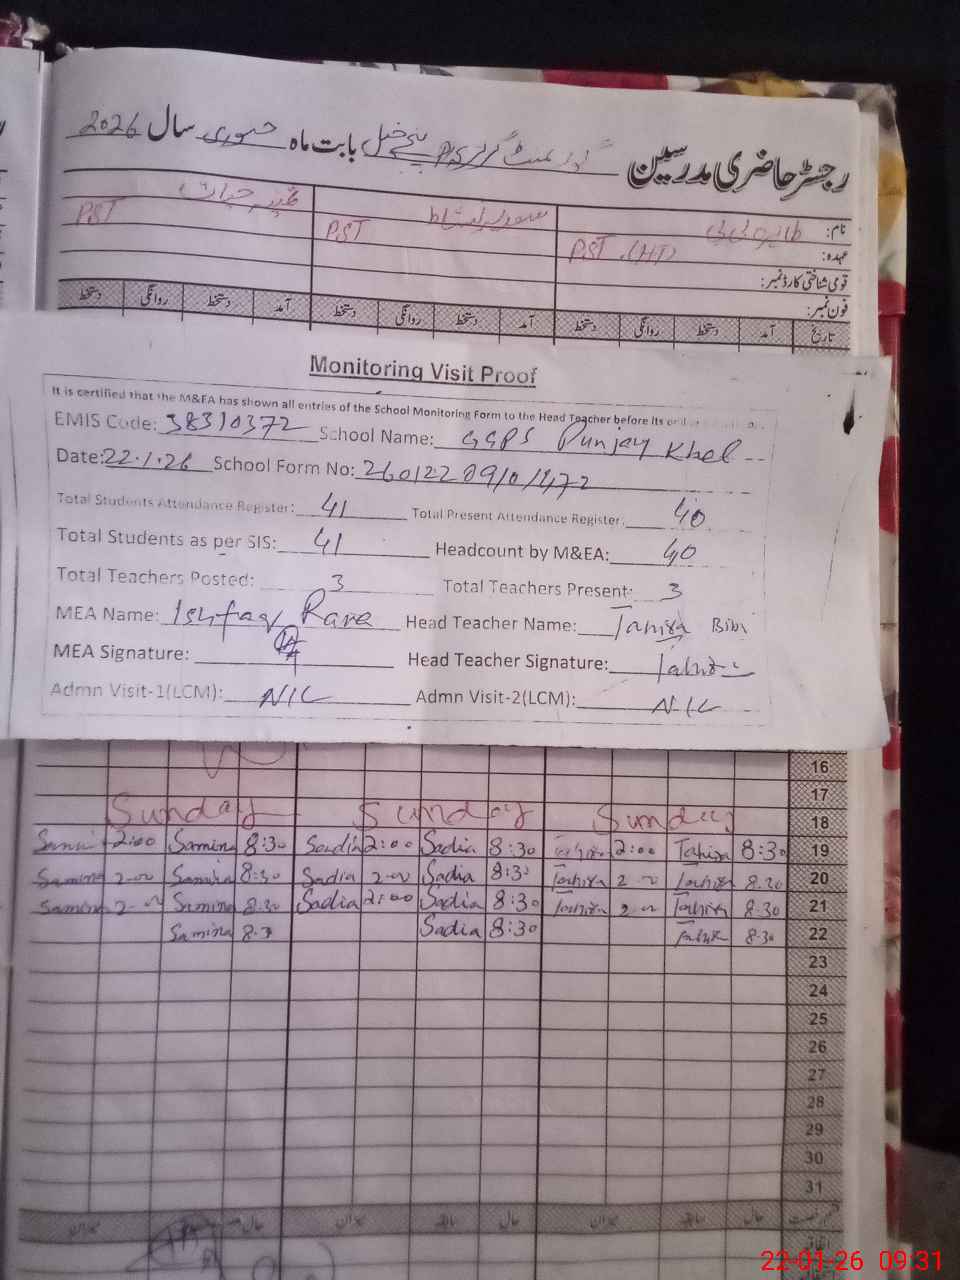 رجسٹر حاضری مدرسین گورنمنٹ گرلز پنجے خیل بابت ماہ جنوری سال 2026
نام: طاہرہ بی بی
عہدہ: PST (HT) PST PST
قومی شناختی کارڈ نمبر:
فون نمبر:
تاریخ آمد دستخط روانگی دستخط آمد دستخط روانگی دستخط آمد دستخط روانگی دستخط
Monitoring Visit Proof
It is certified that the M&EA has shown all entries of the School Monitoring Form to the Head Teacher before its
EMIS Code: 38310372 School Name: GGPS Punjay Khel
Date: 22.1.26 School Form No: 26012209101472
Total Students Attendance Register: 41 Total Present Attendance Register: 40
Total Students as per SIS: 41 Headcount by M&EA: 40
Total Teachers Posted: 3 Total Teachers Present: 3
MEA Name: Ishfaq Head Teacher Name: Tahira Bibi
MEA Signature: Head Teacher Signature: Tahira
Admn Visit-1(LCM): NIL Admn Visit-2(LCM): NIL
16
17
Sunday Sunday Sunday 18
2:00 Samina 8:30 Sadia 2:00 Sadia 8:30 Tahira 2:00 Tahira 8:30 19
Samina 2-00 Samina 8:30 Sadia 2-00 Sadia 8:30 Tahira 2-00 Tahira 8.30 20
Samina 2-00 Samina 8.30 Sadia 2:00 Sadia 8:30 Tahira 2-00 Tahira 8.30 21
Samina 8.30 Sadia 8:30 Tahira 8.30 22
23
24
25
26
27
28
29
30
31
22-01-26 09:31